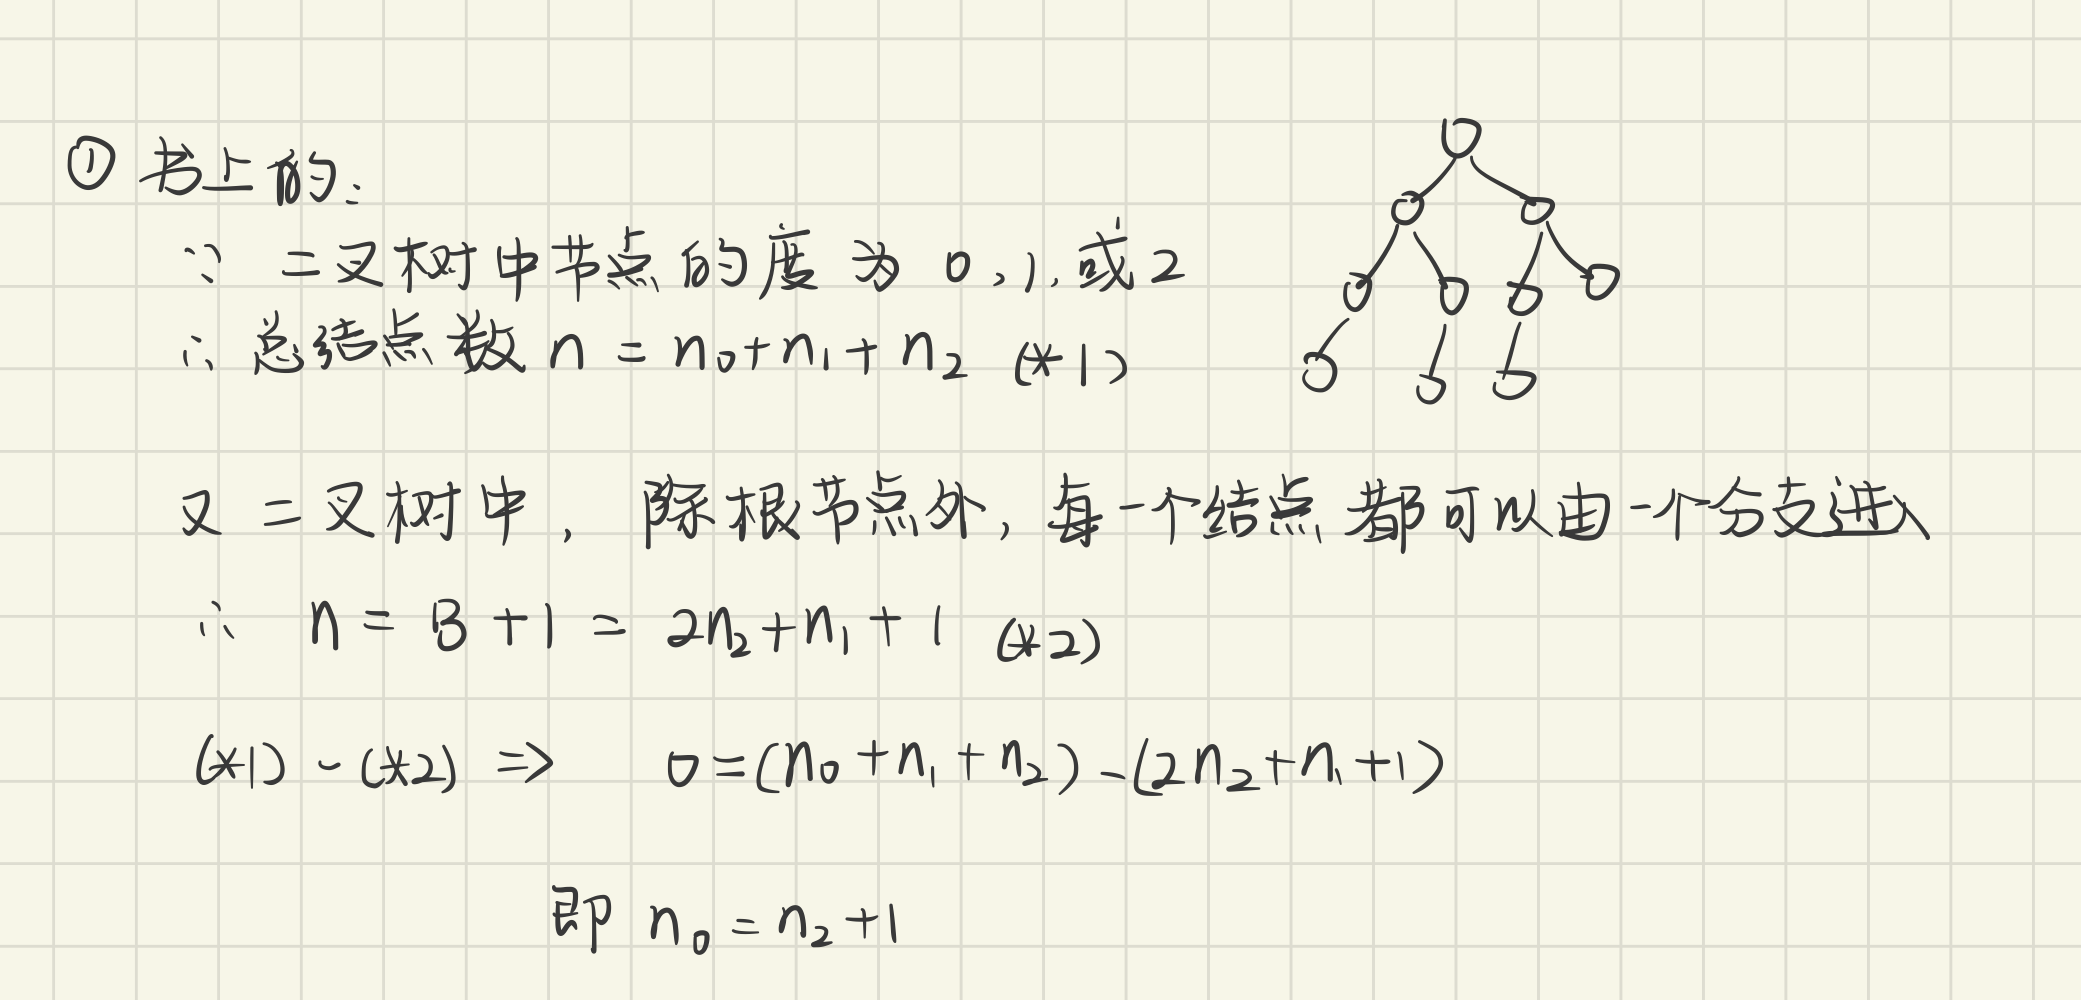 ① 书上的:
∵ 二叉树中节点的度为 0,1,或2
∴ 总结点数 n = n₀+n₁+n₂ (*1)
又 二叉树中, 除根节点外, 每一个结点都可以由一个分支进入
∴ n = B+1 = 2n₂+n₁+1 (*2)
(*1) - (*2) ⇒ 0=(n₀+n₁+n₂)-(2n₂+n₁+1)
即 n₀=n₂+1